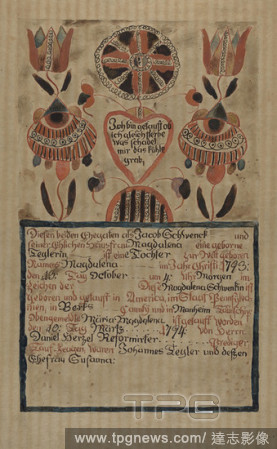 Ich bin getauft ob
ich gleich sterbe
Was schadet
mir das Kühle
grab,
Diesen beiden Ehegatten als Jacob Schwenck und
seiner ehlichen Hausfrau Magdalena eine geborne
Zeglerin ist eine Tochter zur Welt gebohren
Namens Magdalena im Jahr Christi 1793:
den 10. Tag October 4. Uhr Morgen im
zeichen der Diese Magdalena Schwenkin ist
geboren und getauft in America, im Staat
in Berks Caunti und in Manheim Taunschip
Maria Magdalena ist getauft worden
den 10. Tag Märtz 1794 Von Herrn
Daniel Hertzel Reformirter Prediger
Tauf Zeugen waren Johannes Zegler und dessen
Ehefrau Susanna:
TPG
www.tpgnews.com / 達志影像